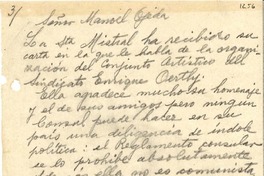 3/ Señor Manoel Ojeda 1256
La Sta Mistral ha recibido su
carta en la que le habla de la organi-
zación del Conjunto Artístico del
Sindicato Enrique
Ella agradece mucho su homenaje
y el de sus amigos pero ningún
Consul puede hacer en su
país una diligencia de índole
política: el Reglamento consular
se lo prohibe absolutamente
no es comunista